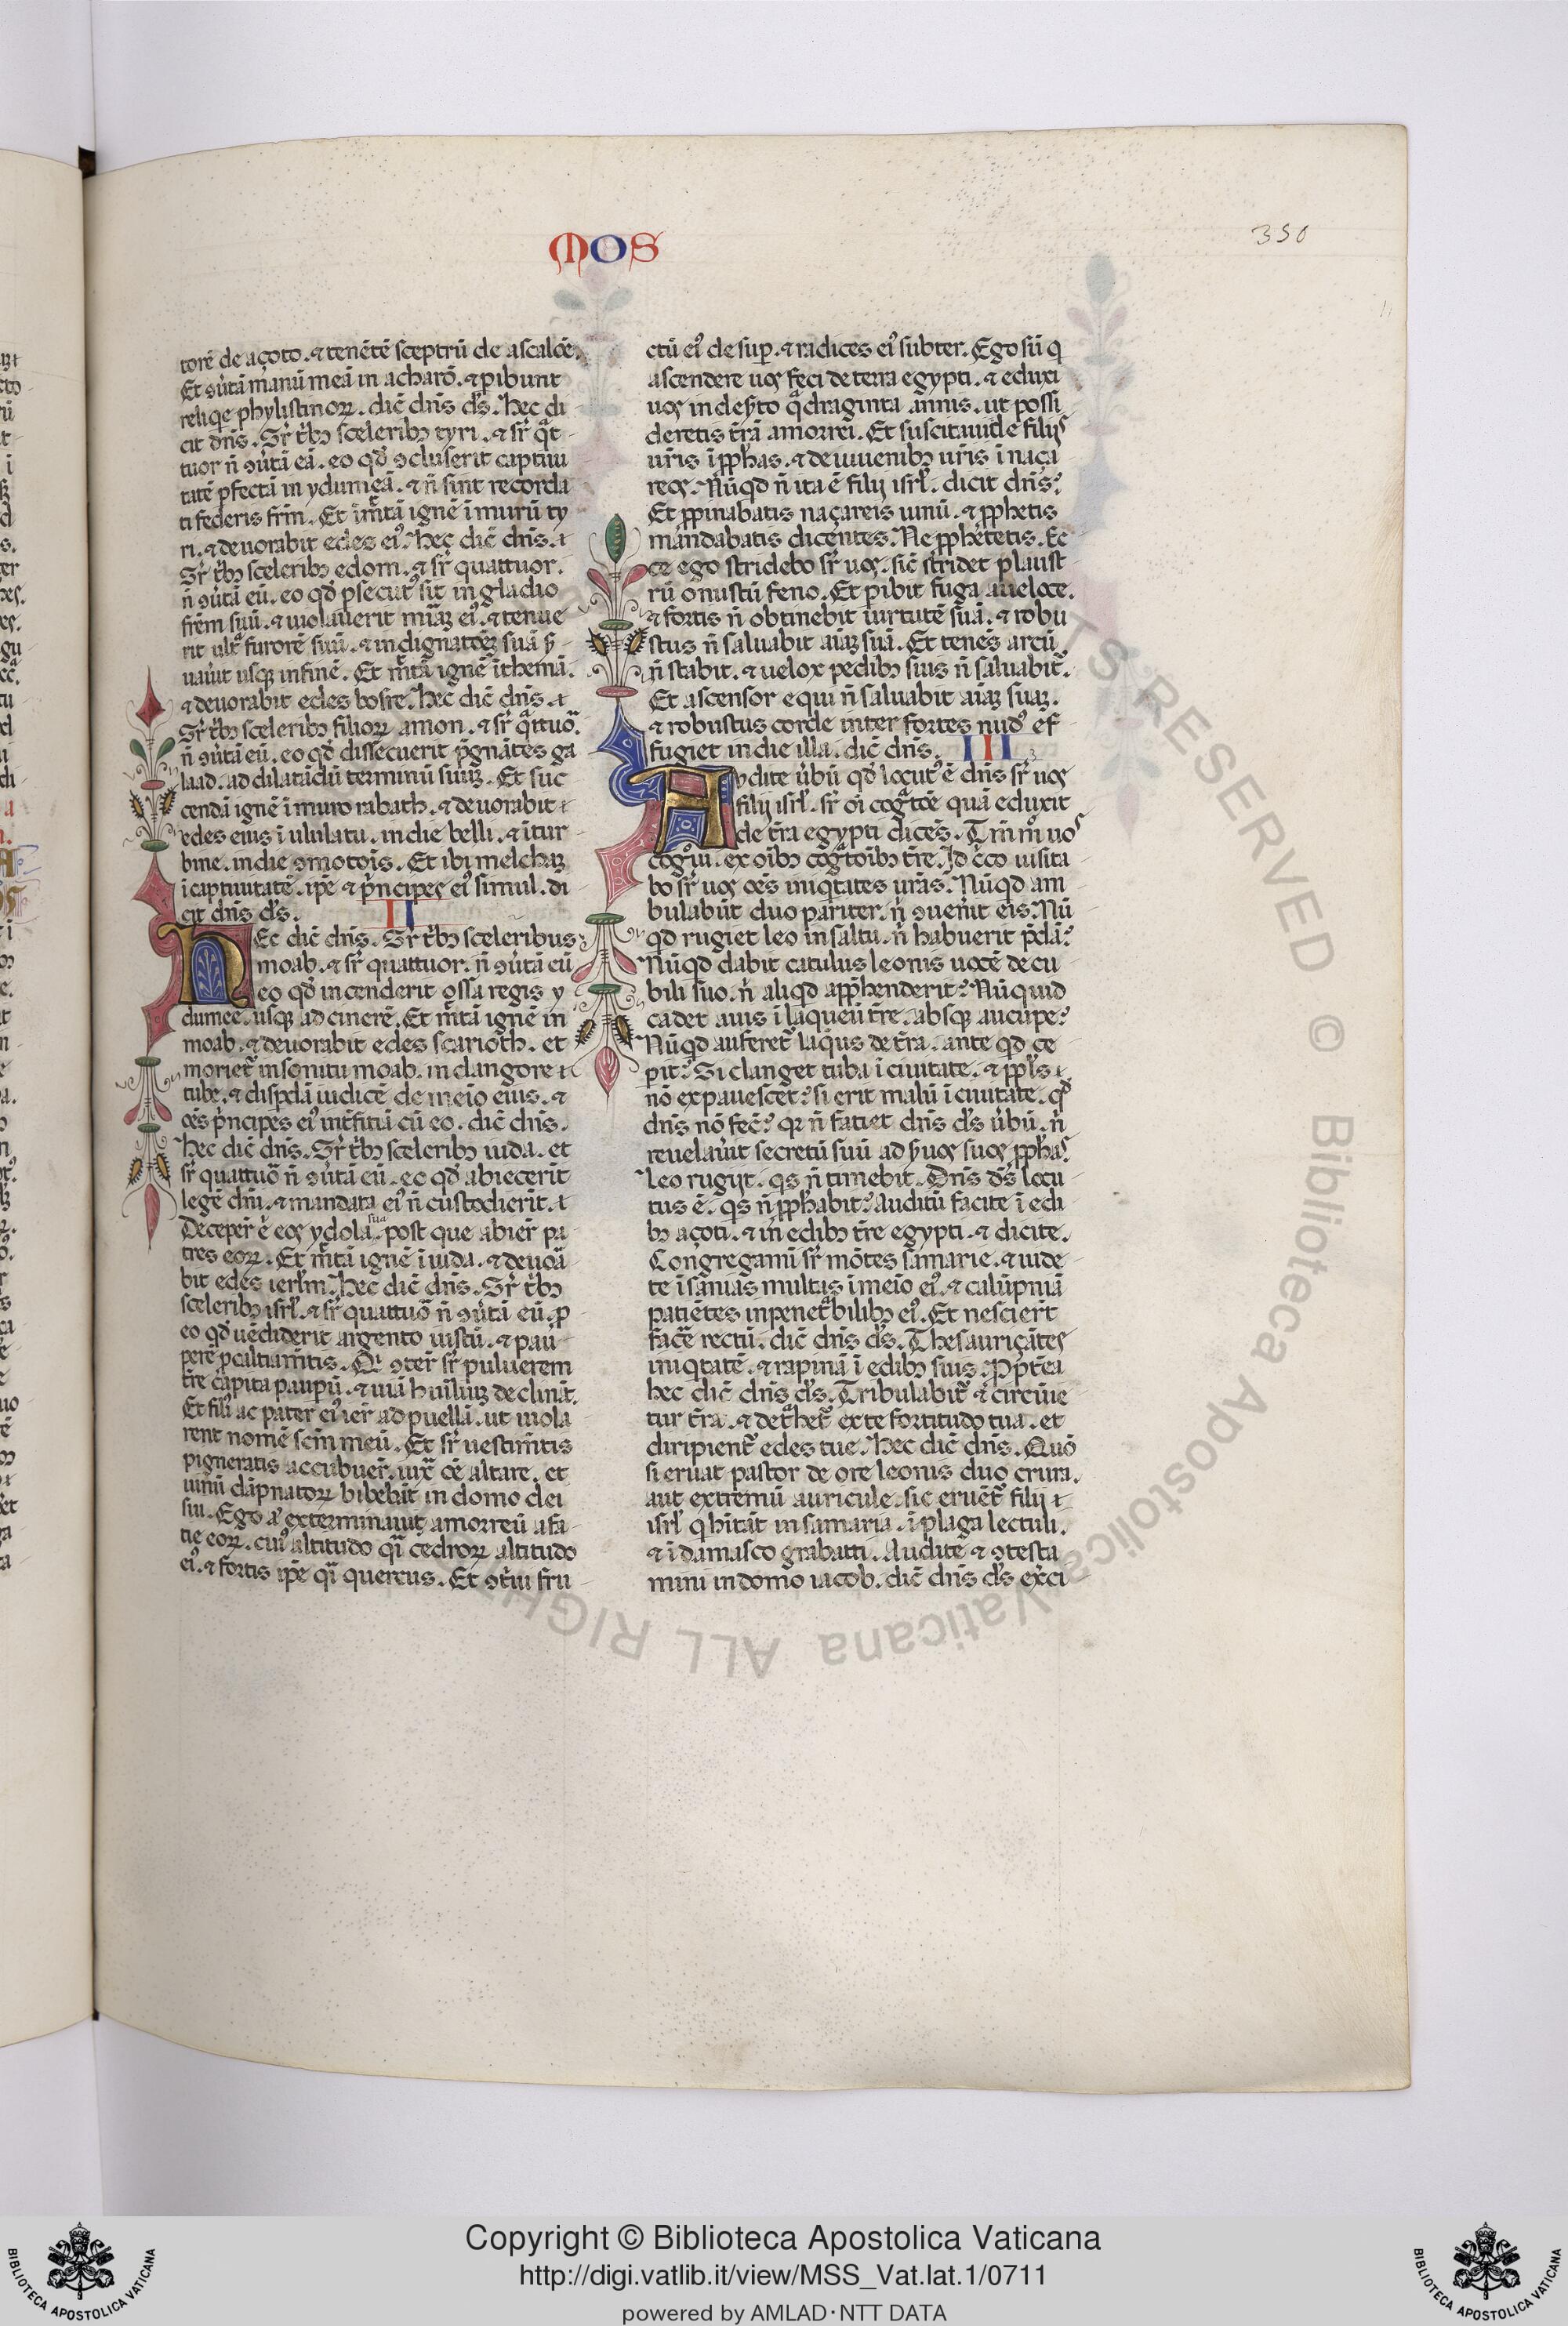 MOS
350
torē de açoto. ⁊ tenētē sceptrū de ascalōe.
Et ꝯu̇tā manū meā in acharō. ⁊ ꝑibunt
reliq̄e phylistinoꝝ. dic̄ dn̄s ds̄. Hec di
cit dn̄s. Sr̄ tͥbꝫ sceleribꝫ tyri. ⁊ sr̄ qͣt
tuor n̄ ꝯu̇tā eā. eo qd̓ ꝯcluserit captiui
tatē ꝑfectā in ydumeā. ⁊ n̄ sint recorda
ti federis fr̄m. Et īmͭtā ignē ī murū ty
ri. ⁊ deuorabit edes eiꝰ. Hec dic̄ dn̄s. ⁊
Sr̄ tͥbꝫ sceleribꝫ edom. ⁊ sr̄ quattuor.
n̄ ꝯu̇tā eū. eo qd̓ ꝑsecutꝰ sit in gladio
frēm suū. ⁊ uiolauerit mīaꝫ eiꝰ. ⁊ tenue
rit ultͣ furorē suū. ⁊ indignatōeꝫ suā s̓
uau̇it usqꝫ in finē. Et mͭtā ignē ī themā.
⁊ deuorabit edes bosre. Hec dic̄ dn̄s. ⁊
Sr̄ tͥbꝫ sceleribꝫ filioꝝ amon. ⁊ sr̄ qͣttuō.
n̄ ꝯu̇tā eū. eo qd̓ dissecuerit p̄gnātes ga
laad. ad dilatādū terminū suuꝫ. Et suc
cendā ignē ī muro rabath. ⁊ deuorabit ⁊
edes eius ī ululatu. in die belli. ⁊ ī tur
bine. in die ꝯmotōis. Et ibi melchaꝫ
ī captiuitatē. ip̄e ⁊ p̓ncipes eiꝰ simul. di
cit dn̄s ds̄. II
HEc dic̄ dn̄s. Sr̄ tͥbꝫ sceleribus
moab. ⁊ sr̄ quattuor. n̄ ꝯu̇tā eū
eo qd̓ incenderit ossa regis y
dumee. usqꝫ ad cinerē. Et mͭtā ignē in
moab. ⁊ deuorabit edes scarioth. et
morietͬ in sonitu moab. in clangore ⁊
tube. ⁊ disꝑdā iudicē de meio eius. ⁊
oēs p̓ncipes eiꝰ int̓fitiā cū eo. dic̄ dn̄s.
Hec dic̄ dn̄s. Sr̄ tͥbꝫ sceleribꝫ iuda. et
sr̄ quattuō n̄ ꝯu̇tā eū. eo qd̓ abiecerit
legē dn̄i. ⁊ mandata eiꝰ n̄ custodierit. ⁊
Deceꝑer̄ ē eos ydola sua. post que abier̄ pa
tres eoꝝ. Et mͭtā ignē ī iuda. ⁊ deuoā
bit edes ierl̄m. Hec dic̄ dn̄s. Sr̄ tͥbꝫ
sceleribꝫ isrl̄. ⁊ sr̄ quattuō n̄ ꝯu̇tā eū. ꝓ
eo qd̓ uēdiderit argento iustū. ⁊ pau
perē ꝓ caltiam̄tis. Qͥ ꝯter̄ sr̄ puluerem
tr̄e capita pauꝑū. ⁊ uiā humiliuꝫ declināt.
Et filiꝰ ac pater eiꝰ ier̄ ad puellā. ut uiola
rent nomē sc̄m meū. Et sr̄ uestim̄tis
pigneratis accubuer̄. iux̄ oē altare. et
uinū dāpnatoꝝ bibebāt in domo dei
sui. Ego aͭ exterminauit amorreū a fa
tie eoꝝ. cuiꝰ altitudo qͣi cedroꝝ altitudo
eiꝰ. ⁊ fortis ip̄e qͣi quercus. Et ꝯtͥui fru
ctū eiꝰ de suꝑ. ⁊ radices eiꝰ subter. Ego sū q
ascendere uos feci de terra egypti. ⁊ eduxi
uos in des̓to qͣdraginta annis. ut possi
deretis tr̄ā amorrei. Et suscitaui de filijs
ur̄is ī ꝓph̄as. ⁊ de iuuenibꝫ ur̄is ī naça
reos. Nūqd̓ n̄ ita ē filij isrl̄. dicit dn̄s?
Et ꝓpinabatis naçareis uinū. ⁊ ꝓphetis
mandabatis dicentes. Ne ꝓphetetis. Ec
ce ego stridebo sr̄ uos. sic̄ stridet plaust
rū onustū feno. Et ꝑibit fuga a ueloce.
⁊ fortis n̄ obtinebit uirtutē suā. ⁊ robu
stus n̄ saluabit aīaꝫ suā. Et tenēs arcū
n̄ stabit. ⁊ uelox pedibꝫ suis n̄ saluabitͬ.
Et ascensor equi n̄ saluabit aīaꝫ suaꝫ.
⁊ robustus corde inter fortes nudꝰ ef
fugiet in die illa. dic̄ dn̄s. III
AVdite u̇bū qd̓ locutꝰ ē dn̄s sr̄ uos
filij isrl̄. sr̄ oī cogͣtōē quā eduxit
de tr̄a egypti dicēs. Tn̄mͦ uos
cogͦui. ex oībꝫ cogͣtōibꝫ tr̄e. Id cͥco uisita
bo sr̄ uos oēs iniqͥtates urās. Nūqd̓ am
bulabūt duo pariter. n̓ ꝯuen̄it eis. Nū
qd̓ rugiet leo in saltu. n̓ habuerit p̄dā?
Nūqd̓ dabit catulus leonis uocē de cu
bili suo. n̓ aliqd̓ app̄henderit? Nūquid
cadet auis ī laqueū tr̄e. absqꝫ aucupe?
Nūqd̓ auferetͬ laq̄us de tr̄a. ante qd̓ ce
pit? Si clanget tuba ī ciuitate. ⁊ ppl̄s ⁊
nō expauescet? si erit malū ī ciuitate. qd̓
dn̄s nō fec̄? qꝛ n̄ fatiet dn̄s ds̄ u̇bū. n̓
reuelau̇it secretū suū ad s̓uos suos ꝓph̄as.
Leo rugijt. qͥs n̄ timebit. Dn̄s ds̄ locu
tus ē. qͥs n̄ ꝓph̄abit? Auditū facite ī edi
bꝫ açoti. ⁊ in̄ edibꝫ tr̄e egypti. ⁊ dicite.
Congregamī sr̄ mōtes samarie. ⁊ uide
te īsanias multas ī meio eiꝰ. ⁊ calūpniā
patiētes in penetͣlibꝫ eiꝰ. Et nescier̄t
facē rectū. dic̄ dn̄s ds̄. Thesauriçātes
iniqͥtatē. ⁊ rapinā ī edibꝫ suis. Ppt̓ea
hec dic̄ dn̄s ds̄. Tribulabitͬ ⁊ circūie
tur tr̄a. ⁊ detͣhetͬ ex te fortitudo tua. et
diripientͬ edes tue. Hec dic̄ dn̄s. Quō
si eruat pastor de ore leonis duo crura.
aut extremū auricule. sic eruētͬ filij ⁊
isrl̄ q h̄itāt in samaria. ī plaga lectuli.
⁊ ī damasco grabatti. Audite ⁊ ꝯtesta
mini in domo iacob. dic̄ dn̄s ds̄ ex̓ci
ALL RIGHTS RESERVED © Biblioteca Apostolica Vaticana
Copyright © Biblioteca Apostolica Vaticana
http://digi.vatlib.it/view/MSS_Vat.lat.1/0711
powered by AMLAD·NTT DATA
BIBLIOTECA APOSTOLICA VATICANA
BIBLIOTECA APOSTOLICA VATICANA